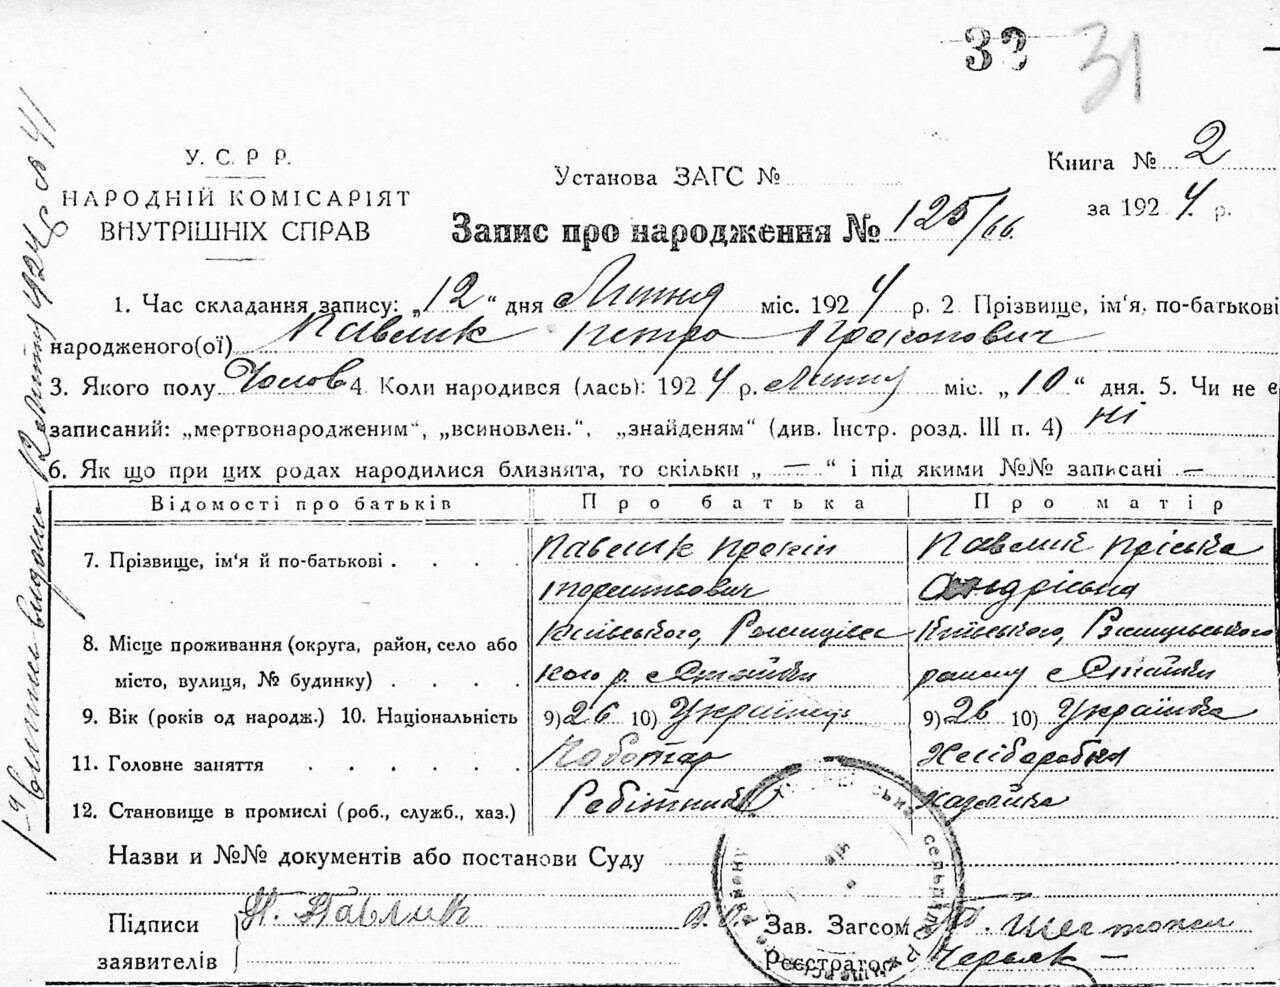 32 31
У. С. Р. Р.
НАРОДНІЙ КОМІСАРІЯТ
ВНУТРІШНІХ СПРАВ
Установа ЗАГС №
Книга № 2
за 1924 р.
Запис про народження № 125/66.
1. Час складання запису: „12“ дня Липня міс. 1924 р. 2 Прізвище, ім'я, по-батькові
народженого(ої) Павлик Петро Прокопович
3. Якого полу Чолов 4. Коли народився (лась): 1924 р. Липня міс. „10“ дня. 5. Чи не є
записаний: „мертвонародженим“, „всиновлен.“, „знайденям“ (див. Інстр. розд. III п. 4) ні
6. Як що при цих родах народилися близнята, то скільки „ — “ і під якими №№ записані —
Відомості про батьків Про батька Про матір
7. Прізвище, ім'я й по-батькові . . . . Павлик Прокіп Павлик Пріська
Андріівна
8. Місце проживання (округа, район, село або Київського, Ржищівсь Київського, Ржищівського
місто, вулиця, № будинку) . . . . кого р. Стайки району Стайки
9. Вік (років од народж.) 10. Національність 9) 26 10) Українець 9) 26 10) Українка
11. Головне заняття . . . . . . Чоботар Хліборобка
12. Становище в промислі (роб., служб., хаз.) Робітник хазяйка
Назви и №№ документів або постанови Суду
Підписи П. Павлик Зав. Загсом
заявителів Реєстратор
1-а випись видана 12 Липня 1924 р. № 41